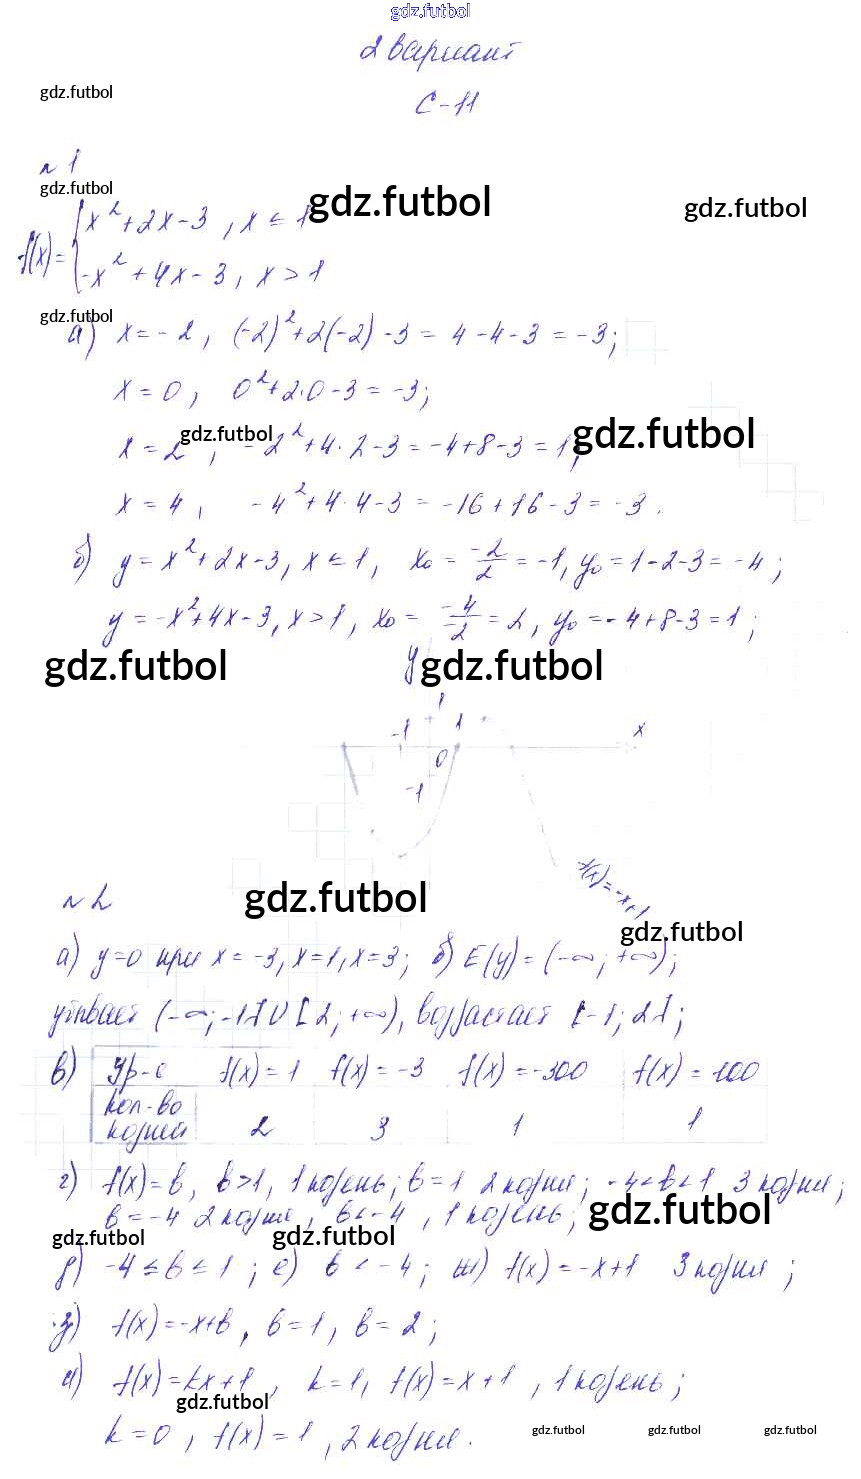 gdz.futbol
2 вариант
gdz.futbol
С-11
№ 1
gdz.futbol
gdz.futbol
gdz.futbol
f(x) = { x² + 2x - 3, x ≤ 1
-x² + 4x - 3, x > 1
gdz.futbol
а) x = -2, (-2)² + 2(-2) - 3 = 4 - 4 - 3 = -3;
x = 0, 0² + 2·0 - 3 = -3;
gdz.futbol
gdz.futbol
x = 2, -2² + 4·2 - 3 = -4 + 8 - 3 = 1;
x = 4, -4² + 4·4 - 3 = -16 + 16 - 3 = -3.
б) y = x² + 2x - 3, x ≤ 1, x₀ = -2/2 = -1, y₀ = 1 - 2 - 3 = -4;
y = -x² + 4x - 3, x > 1, x₀ = -4/-2 = 2, y₀ = -4 + 8 - 3 = 1;
gdz.futbol
y
gdz.futbol
1
-1
1
x
0
-1
f(x) = -x + 1
№ 2
gdz.futbol
gdz.futbol
а) y = 0 при x = -3, x = 1, x = 3; б) E(y) = (-∞; +∞);
убывает (-∞; -1] U [2; +∞), возрастает [-1; 2];
в) Ур-е f(x) = 1 f(x) = -3 f(x) = -300 f(x) = 100
кол-во
корней 2 3 1 1
г) f(x) = b, b > 1, 1 корень; b = 1 2 корня; -4 < b < 1 3 корня;
b = -4 2 корня, b < -4, 1 корень;
gdz.futbol
gdz.futbol
gdz.futbol
д) -4 ≤ b ≤ 1; е) b < -4; ж) f(x) = -x + 1 3 корня;
з) f(x) = -x + b, b = 1, b = 2;
и) f(x) = kx + 1, k = 1, f(x) = x + 1, 1 корень;
gdz.futbol
k = 0, f(x) = 1, 2 корня.
gdz.futbol
gdz.futbol
gdz.futbol